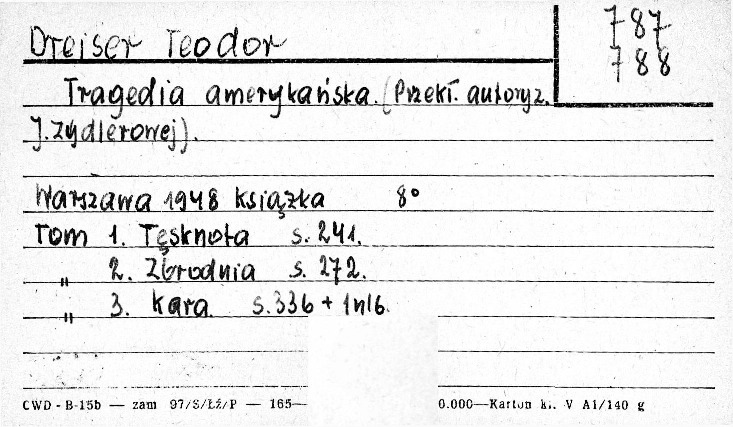 Dreiser Teodor
787
788
Tragedia amerykańska. (Przekł. autoryz.
J. Zydlerowej).
Warszawa 1948 Książka 8°
Tom 1. Tęsknota s. 241.
„ 2. Zbrodnia s. 272.
„ 3. Kara. s. 336 + 1 nlb.
CWD - B-15b — zam 97/S/Łź/P — 165—
0.000—Karton kl. V A1/140 g